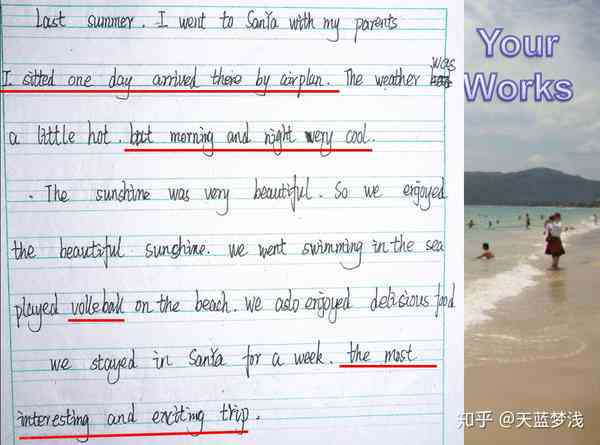 Last summer. I went to Sanya with my parents
I sitted one day arrived there by airplan. The weather was
a little hot. but morning and night very cool.
. The sunshine was very beautiful. So we enjoyed
the beautiful sunshine. we went swimming in the sea
played volleball on the beach. we aslo enjoyed delisious food
we stayed in Sanya for a week. the most
interesting and exciting trip.
Your
Works
知乎 @天蓝梦浅